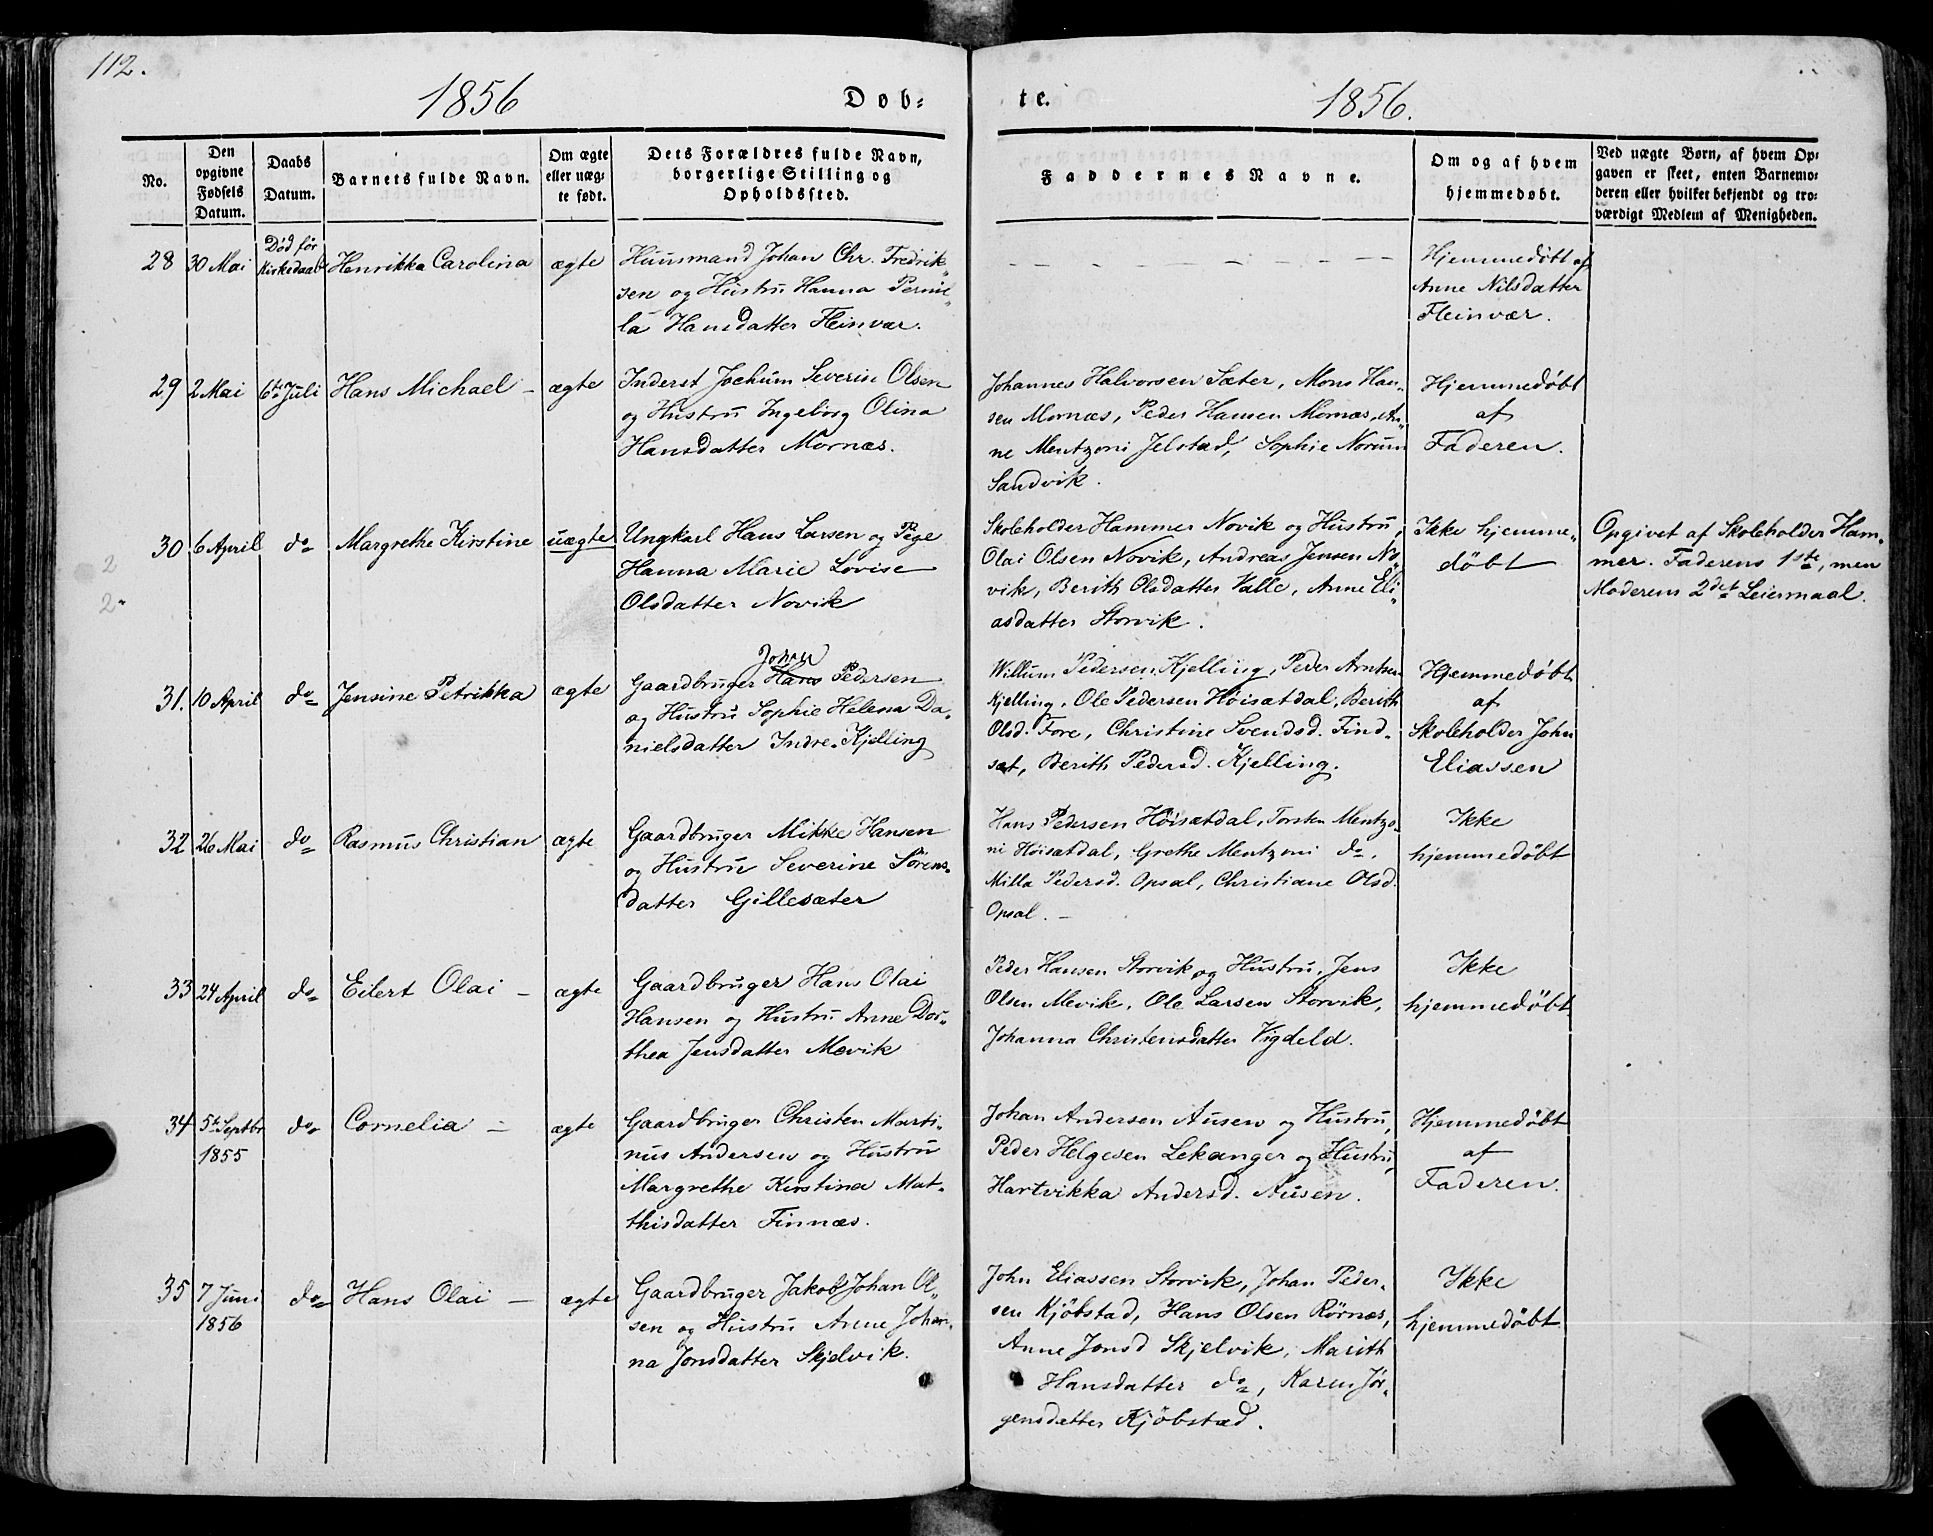 112.
1856
Døb-
te.
1856.
No.
Den
opgivne
Fødsels
Datum.
Daabs
Datum.
Barnets fulde Navn.
Om ægte
eller uæg-
te født.
Dets Forældres fulde Navn,
borgerlige Stilling og
Opholdsfted.
Faddernes Navne.
Om og af hvem
hjemmedøbt.
Ved uægte Børn, af hvem Op-
gaven er skeet, enten Barnemo-
deren eller hvilket bekjendt og tro-
værdigt Medlem af Menigheden.
28
30 Mai
Død før
Kirkedaab
Henrikka Carolina
ægte
Huusmand Johan Chr. Fredrik-
sen og Hustru Hanna Pernil-
la Hansdatter Fleinvær.
- - - - - - - - -
Hjemmedøbt af
Anne Nilsdatter
Fleinvær.
29
2 Mai
6te Juli
Hans Michael -
ægte
Inderst Jochum Severin Olsen
og Hustru Ingeborg Olina
Hansdatter Mornæs.
Johannes Halvorsen Sæter, Mons Han-
sen Mornæs, Peder Hansen Mornæs, An-
ne Mentzoni Jelstad, Sophie Norum
Sandvik.
Hjemmedøbt
af
Faderen.
2
2"
30
6 April
do
Margrethe Kirstine
uægte
Ungkarl Hans Larsen og Pige
Hanna Marie Lovise
Olsdatter Novik
Skoleholder Hammer Novik og Hustru,
Olai Olsen Novik, Andreas Jensen No-
vik, Berith Olsdatter Valle, Anne Eli-
asdatter Storvik.
Ikke hjemme-
døbt
Opgivet af Skoleholder Ham-
mer. Faderens 1ste, men
Moderens 2det Leiermaal.
31.
10 April
do
Jensine Petrikka
ægte
Johan
Gaardbruger Hans Pedersen
og Hustru Sophie Helena Da-
nielsdatter Indre-Kjelling
Willum Pedersen Kjelling, Peder Arntsen
Kjelling, Ole Pedersen Høisætdal, Berith
Olsd. Fore, Christine Svendsd. Find-
sæt, Berith Pedersd. Kjelling.
Hjemmedøbt
af
Skoleholder John
Eliassen
32
26 Mai
do
Rasmus Christian
ægte
Gaardbruger Mikke Hansen
og Hustru Severine Sørens-
datter Gillesæter
Hans Pedersen Höisætdal, Torsten Mentzo-
ni Höisætdal, Grethe Mentzoni do,
Milla Pedersd. Opsal, Christiane Olsd.
Opsal. -
Ikke
hjemmedøbt
33
24 April
do
Eilert Olai -
ægte
Gaardbruger Hans Olai
Hansen og Hustru Anne Dor-
thea Jensdatter Mevik
Peder Hansen Storvik og Hustru, Jens
Olsen Mevik, Ole Larsen Storvik,
Johanna Christensdatter Vigdeld.
Ikke
hjemmedøbt
34
5te Septbr
1855
do
Cornelia -
ægte
Gaardbruger Christen Marti-
nus Andersen og Hustru
Margrethe Kirstina Mat-
thisdatter Finnæs.
Johan Andersen Ausen og Hustru,
Peder Helgesen Lekanger og Hustru,
Hartvikka Andersd. Ausen.
Hjemmedøbt
af
Faderen.
35
7 Juni
1856
do
Hans Olai -
ægte
Gaardbruger Jakob Johan Ol-
sen og Hustru Anne Johan-
na Jonsdatter Skjelvik.
John Eliassen Storvik, Johan Peder-
sen Kjöbstad, Hans Olsen Rørnæs,
Anne Jonsd Skjelvik, Marith
Hansdatter do, Karen Jør-
gensdatter Kjöbstad.
Ikke
hjemmedøbt